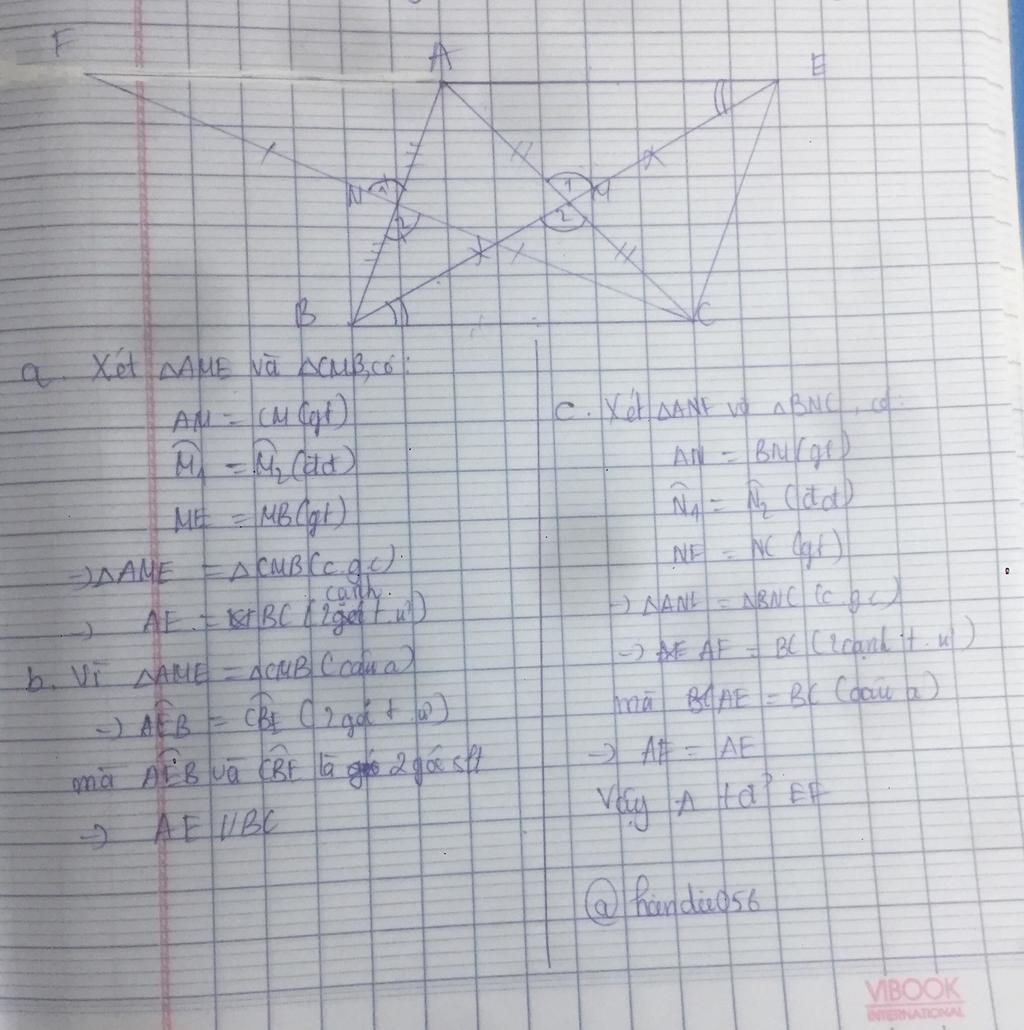 F
A
E
N
1
2
1
M
2
B
C
a. Xét △AME và △CMB, có:
AM = CM (gt)
M̂1 = M̂2 (đđ)
ME = MB (gt)
⇒ △AME = △CMB (c.g.c)
cạnh
→ AE = BC (2 góc t.ư)
b. Vì △AME = △CMB (câu a)
→ AÊB = CB̂E (2 góc t.ư)
mà AÊB và CB̂E là 2 góc slt
→ AE // BC
c. Xét △ANF và △BNC, có:
AN = BN (gt)
N̂1 = N̂2 (đđ)
NF = NC (gt)
→ △ANF = △BNC (c.g.c)
→ AF = BC (2 cạnh t.ư)
mà AE = BC (câu a)
→ AE = AF
Vậy A tđ EF
@handie056
VIBOOK
INTERNATIONAL